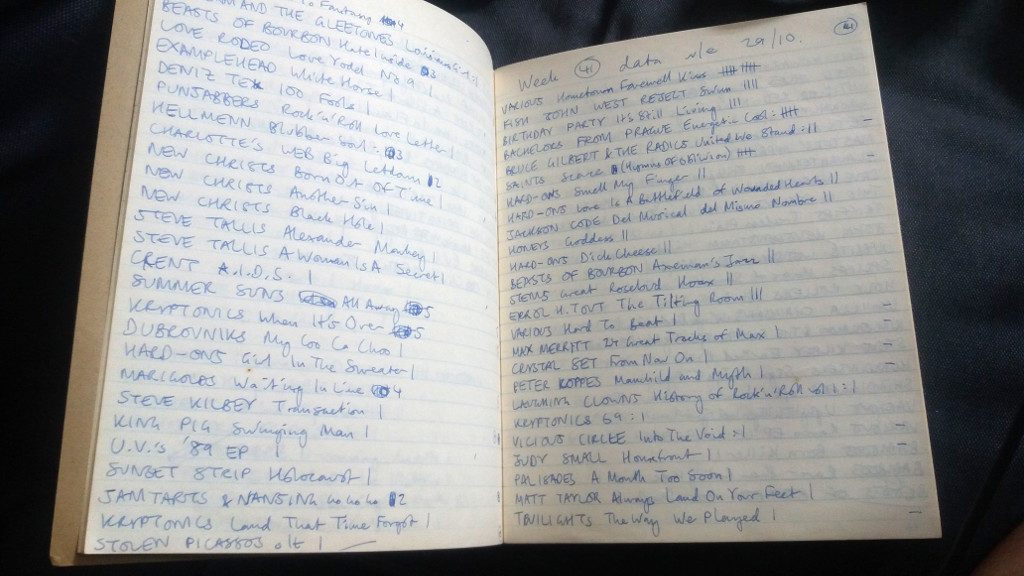 to Fantasy 4
AND THE GLEETONES
BEASTS OF BOURBON Hate Inside 3
LOVE RODEO Love Yodel No 9 1
EXAMPLEHEAD White Horse |
DENIZ TEK 100 Fools |
PUNJABBERS Rock'n'Roll Love Letter |
HELLMENN Blubber Soul : 3
CHARLOTTE'S WEB Big Letdown 2
NEW CHRISTS Born Out Of Time |
NEW CHRISTS Another Sin |
NEW CHRISTS Black Hole |
STEVE TALLIS Alexander Monkey |
STEVE TALLIS A Woman Is A Secret |
CRENT A.I.D.S. |
SUMMER SUNS All Away 5
KRYPTONICS When It's Over 5
DUBROVNIKS My Coo Ca Choo |
HARD-ONS Girl In The Sweater |
MARIGOLDS Waiting In Line 4
STEVE KILBEY Transaction |
KING PIG Swinging Man |
U.V.'s '89 EP |
SUNSET STRIP Holocaust |
JAM TARTS & NANSING Ho Ho Ho 2
KRYPTONICS Land That Time Forgot |
STOLEN PICASSOS o/t |
Week 41 data w/e 29/10. 41
VARIOUS Hometown Farewell Kiss |||| ||||
FISH JOHN WEST REJECT Swim ||||
BIRTHDAY PARTY It's Still Living |||
BACHELORS FROM PRAGUE Energetic Cool : ||||
BRUCE GILBERT & THE RADICS United We Stand : ||
SAINTS Scarce (Hymns of Oblivion) ||||
HARD-ONS Smell My Finger ||
HARD-ONS Love Is A Battlefield of Wounded Hearts ||
JACKSON CODE Del Musical del Mismo Nombre ||
HONEYS Goddess ||
HARD-ONS Dick Cheese ||
BEASTS OF BOURBON Axeman's Jazz ||
STEMS Great Rosebud Hoax ||
ERROL H. TOUT The Tilting Room |||
VARIOUS Hard To Beat |
MAX MERRITT 24 Great Tracks of Max |
CRYSTAL SET From Now On |
PETER KOPPES Manchild and Myth |
LAUGHING CLOWNS History of Rock'n'Roll vol 1 : |
KRYPTONICS 69 : |
VICIOUS CIRCLE Into The Void : |
JUDY SMALL Homefront |
PALISADES A Month Too Soon |
MATT TAYLOR Always Land On Your Feet |
TWILIGHTS The Way We Played |